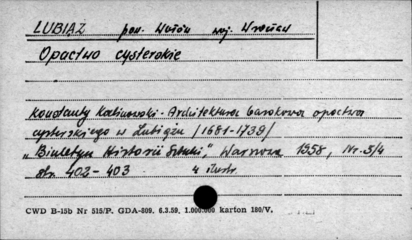 LUBIĄŻ pow. Wołów woj. Wrocław
Opactwo cysterskie
Konstanty Kalinowski - Architektura barokowa opactwa
cysterskiego w Lubiążu /1681-1739/
"Biuletyn Historii Sztuki", Warszawa 1958, Nr. 3/4
str. 402-403 4 ilustr.
CWD B-15b Nr 515/P. GDA-809. 6.3.59. 1.000.000 karton 180/V.